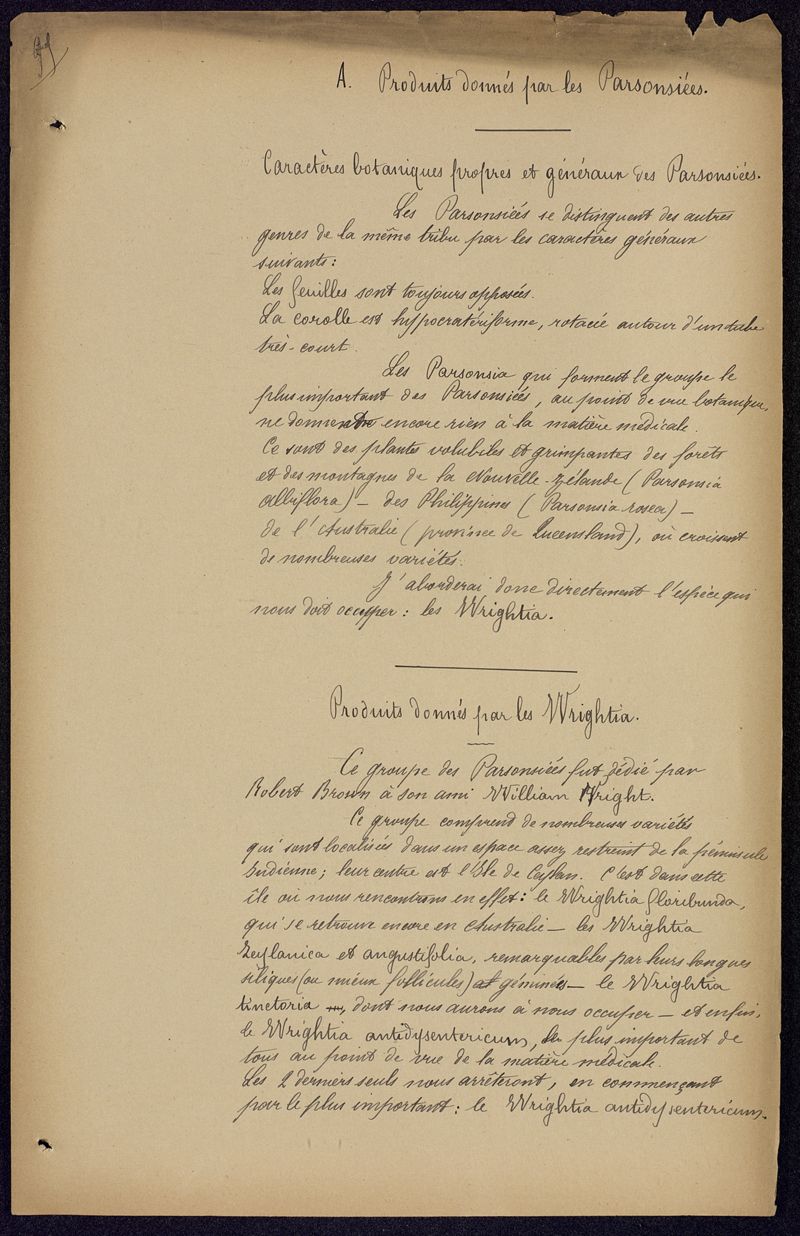 A. Produits donnés par les Parsonsiées.
Caractères botaniques propres et généraux des Parsonsiées.
Les Parsonsiées se distinguent des autres
genres de la même tribu par les caractères généraux
suivants :
Les feuilles sont toujours opposées.
La corolle est hypocratériforme, rotacée autour d'un tube
très-court.
Les Parsonsia qui forment le groupe le
plus important des Parsonsiées, au point de vue botanique,
ne donnent encore rien à la matière médicale.
Ce sont des plantes volubiles et grimpantes des forêts
et des montagnes de la Nouvelle-Zélande (Parsonsia
albiflora) — des Philippines (Parsonsia rosea) —
de l'Australie (province de Queensland), où croissent
de nombreuses variétés.
J'aborderai donc directement l'espèce qui
nous doit occuper : les Wrightia.
Produits donnés par les Wrightia.
Ce groupe des Parsonsiées fut dédié par
Robert Brown à son ami William Wright.
Ce groupe comprend de nombreuses variétés
qui sont localisées dans un espace assez restreint de la péninsule
Indienne ; leur centre est l'Ile de Ceylan. C'est dans cette
île où nous rencontrons en effet : le Wrightia floribunda,
qui se retrouve encore en Australie — les Wrightia
Zeylanica et angustifolia, remarquables par leurs longues
siliques (ou mieux follicules) géminées — le Wrightia
tinctoria, dont nous aurons à nous occuper — et enfin,
le Wrightia antidysentericum, le plus important de
tous au point de vue de la matière médicale.
Les 2 derniers seuls nous arrêteront, en commençant
par le plus important : le Wrightia antidysentericum.